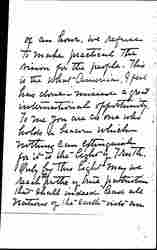 of an hour, we refuse
to make practical the
vision for the people. This
is the what America, I feel
has done - missed a great
international opportunity
To me you are as one who
holds a beacon which
nothing can extinguish
for it is the Light of Truth.
Only by this light may we
reach paths of true
that shall indeed lead all
nations of the earth into